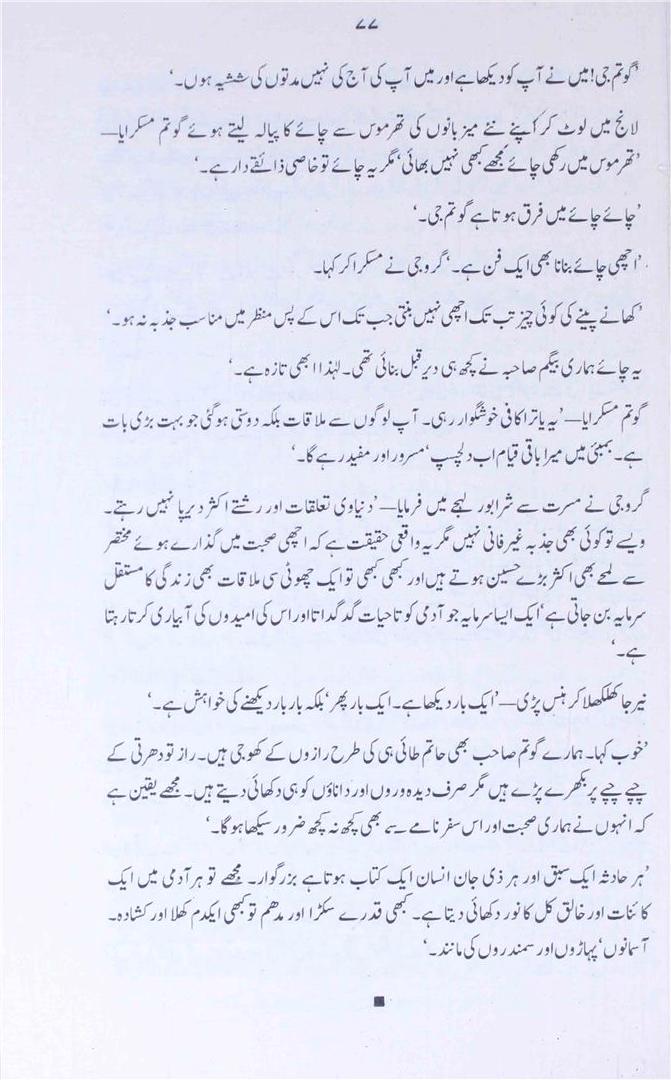 ۷۷
’گوتم جی! میں نے آپ کو دیکھا ہے اور میں آپ کی آج کی نہیں مدتوں کی ششیہ ہوں۔‘
لانچ میں لوٹ کر اُپنے نئے میزبانوں کی تھرموس سے چائے کا پیالہ لیتے ہوئے گوتم مسکرایا—
’تھرموس میں رکھی چائے مجھے کبھی نہیں بھائی‘ مگر یہ چائے تو خاصی ذائقے دار ہے۔‘
’چائے چائے میں فرق ہوتا ہے گوتم جی۔‘
’اچھی چائے بنانا بھی ایک فن ہے۔‘ گروجی نے مسکرا کر کہا۔
’کھانے پینے کی کوئی چیز تب تک اچھی نہیں بنتی جب تک اس کے پس منظر میں مناسب جذبہ نہ ہو۔‘
یہ چائے ہماری بیگم صاحبہ نے کچھ ہی دیر قبل بنائی تھی۔ لہٰذا ابھی تازہ ہے۔‘
گوتم مسکرایا— ’یہ یاترا کافی خوشگوار رہی۔ آپ لوگوں سے ملاقات بلکہ دوستی ہوگئی جو بہت بڑی بات
ہے۔ بمبئی میں میرا باقی قیام اب دلچسپ‘ مسرور اور مفید رہے گا۔‘
گروجی نے مسرت سے شرابور لہجے میں فرمایا— ’دنیاوی تعلقات اور رشتے اکثر دیرپا نہیں رہتے۔
ویسے تو کوئی بھی جذبہ غیر فانی نہیں مگر یہ واقعی حقیقت ہے کہ اچھی صحبت میں گذارے ہوئے مختصر
سے لمحے بھی اکثر بڑے حسین ہوتے ہیں اور کبھی کبھی تو ایک چھوٹی سی ملاقات بھی زندگی کا مستقل
سرمایہ بن جاتی ہے‘ ایک ایسا سرمایہ جو آدمی کو تاحیات گدگداتا اور اس کی امیدوں کی آبیاری کرتا رہتا
ہے۔‘
نیرجا کھلکھلا کر ہنس پڑی— ’ایک بار دیکھا ہے۔ ایک بار پھر‘ بلکہ بار بار دیکھنے کی خواہش ہے۔‘
’خوب کہا۔ ہمارے گوتم صاحب بھی حاتم طائی ہی کی طرح رازوں کے کھوجی ہیں۔ راز تو دھرتی کے
چپے چپے پر بکھرے پڑے ہیں مگر صرف دیدہ وروں اور داناؤں کو ہی دکھائی دیتے ہیں۔ مجھے یقین ہے
کہ انہوں نے ہماری صحبت اور اس سفر نامے سے بھی کچھ نہ کچھ ضرور سیکھا ہوگا۔‘
’ہر حادثہ ایک سبق اور ہر ذی جان انسان ایک کتاب ہوتا ہے بزرگوار۔ مجھے تو ہر آدمی میں ایک
کائنات اور خالق کل کا نور دکھائی دیتا ہے۔ کبھی قدرے سکڑا اور مدھم تو کبھی ایکدم کھلا اور کشادہ۔
آسمانوں‘ پہاڑوں اور سمندروں کی مانند۔‘